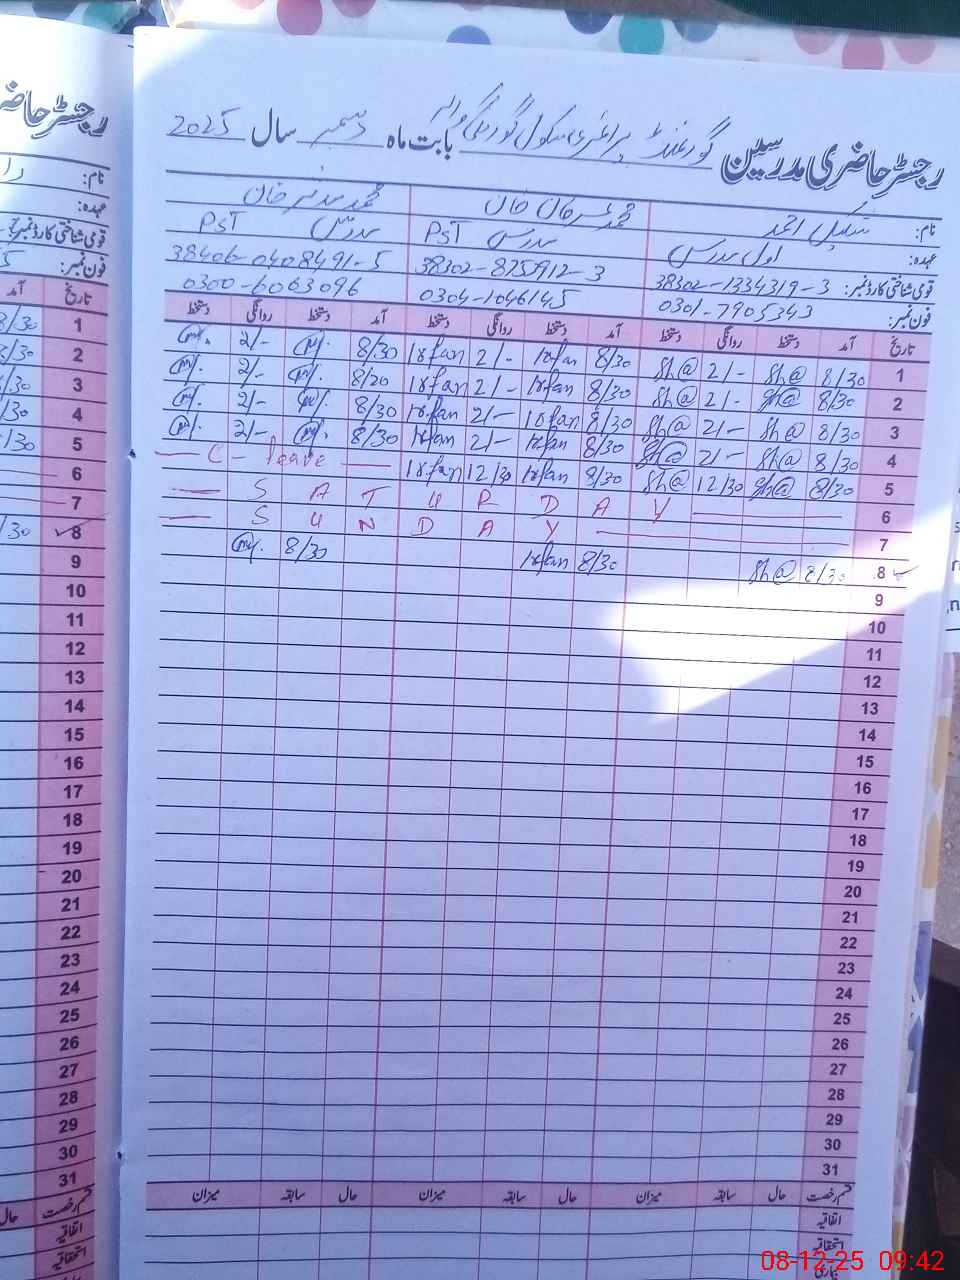 رجسٹر حاضری مدرسین گورنمنٹ پرائمری سکول بابت ماہ دسمبر سال 2025
نام: شکیل احمد محمد خان محمد خان
عہدہ: اول مدرس مدرس PST مدرس PST
قومی شناختی کارڈ نمبر: 38302-1334319-3 38302-8757912-3 38406-0408491-5
فون نمبر: 0301-7905343 0304-1046145 0300-6063096
تاریخ آمد دستخط روانگی دستخط آمد دستخط روانگی دستخط آمد دستخط روانگی دستخط
1 8/30 Sh@ 2/- Sh@ 8/30 Irfan 2/- Irfan 8/30 2/-
2 8/30 Sh@ 2/- Sh@ 8/30 Irfan 2/- Irfan 8/20 2/-
3 8/30 Sh@ 2/- Sh@ 8/30 Irfan 2/- Irfan 8/30 2/-
4 8/30 Sh@ 2/- Sh@ 8/30 Irfan 2/- Irfan 8/30 2/-
5 8/30 Sh@ 12/30 Sh@ 8/30 Irfan 12/30 Irfan — C - leave —
6 — SATURDAY —
7 — SUNDAY —
8 8/30 Sh@ 8/30 Irfan 8/30
9
10
11
12
13
14
15
16
17
18
19
20
21
22
23
24
25
26
27
28
29
30
31
قسم رخصت حال سابقہ میزان حال سابقہ میزان حال سابقہ میزان
اتفاقیہ
استحقاقیہ
بیماری
رجسٹر حاضر
نام:
عہدہ:
قومی شناختی کارڈ نمبر:
فون نمبر:
تاریخ آمد
1 8/30
2 8/30
3 8/30
4 8/30
5
6
7
8 8/30
9
10
11
12
13
14
15
16
17
18
19
20
21
22
23
24
25
26
27
28
29
30
31
قسم رخصت حال
اتفاقیہ
استحقاقیہ
08-12-25 09:42